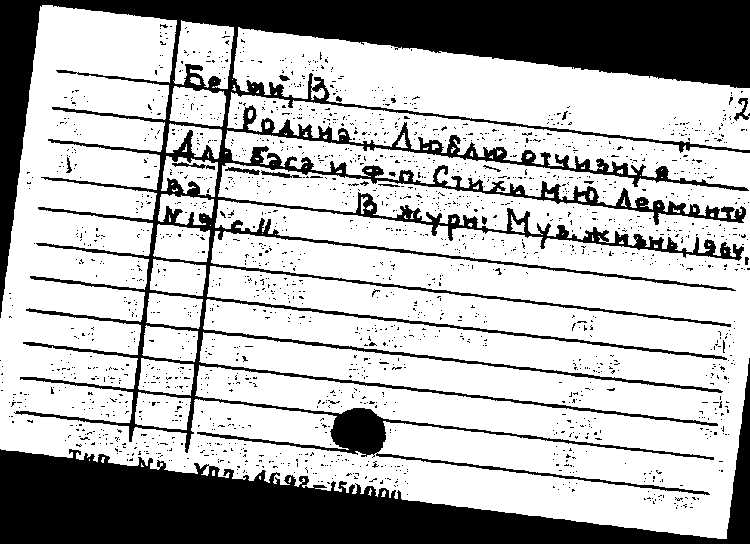 Белый, В.
2
Родина „Люблю отчизну я..."
Для баса и ф-п. Стихи М.Ю. Лермонто
ва. В журн: Муз. жизнь, 1964,
N 19, с. 11.
Тип. №2 УПЛ 4692-150000